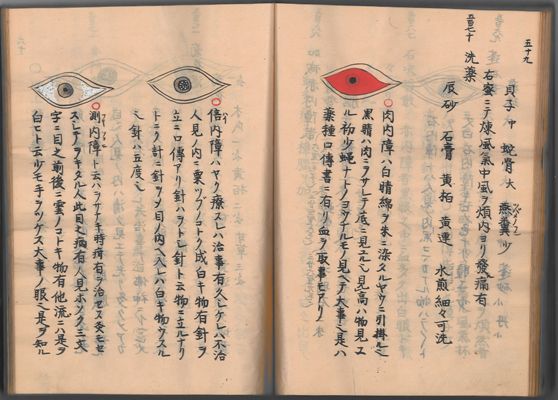 五十九
貝子 中 蛇骨 大 燕糞 少
右蜜ニテ煉風氣中風ヲ煩内ヨリ發痛有
五百七十 洗薬
辰砂 石膏 黄柏 黄連 水煎細々可洗
肉内障ハ白晴綿ヲ朱ニ染タルヤウニ引掛ル
黒睛ハ肉ニヲサレテ底ニ見エル見高ハ物見エ
ル初少蝿ナトノヨウナルモノ見ヘテ大事也是ハ
薬種口傳書ニ有リ血ヲ取事モアリ
倍内障ハヤク療スレハ治事有久シケレハ不治
人見ノ内ニ粟ツブノコトク成白キ物有針ヲ
立ニ口傳アリ針ハヲトシ針ト云物ニ立ルナリ
トニカク計ニ針ヲシメ目ノ内ヘ入レハ白キ物ウスル
シ針ハ五度シ
測内障ト云ハヲサナキ時瘡有ヲ治セス愛モセ
ステヲキタル人此目之病有人見ホソク三文
字ニ目之前後ニ雲ノコトキ物有他流ニハ是ヲ
白ヒト云少モ手ヲツケス大事ノ眼也是ヲ知ル